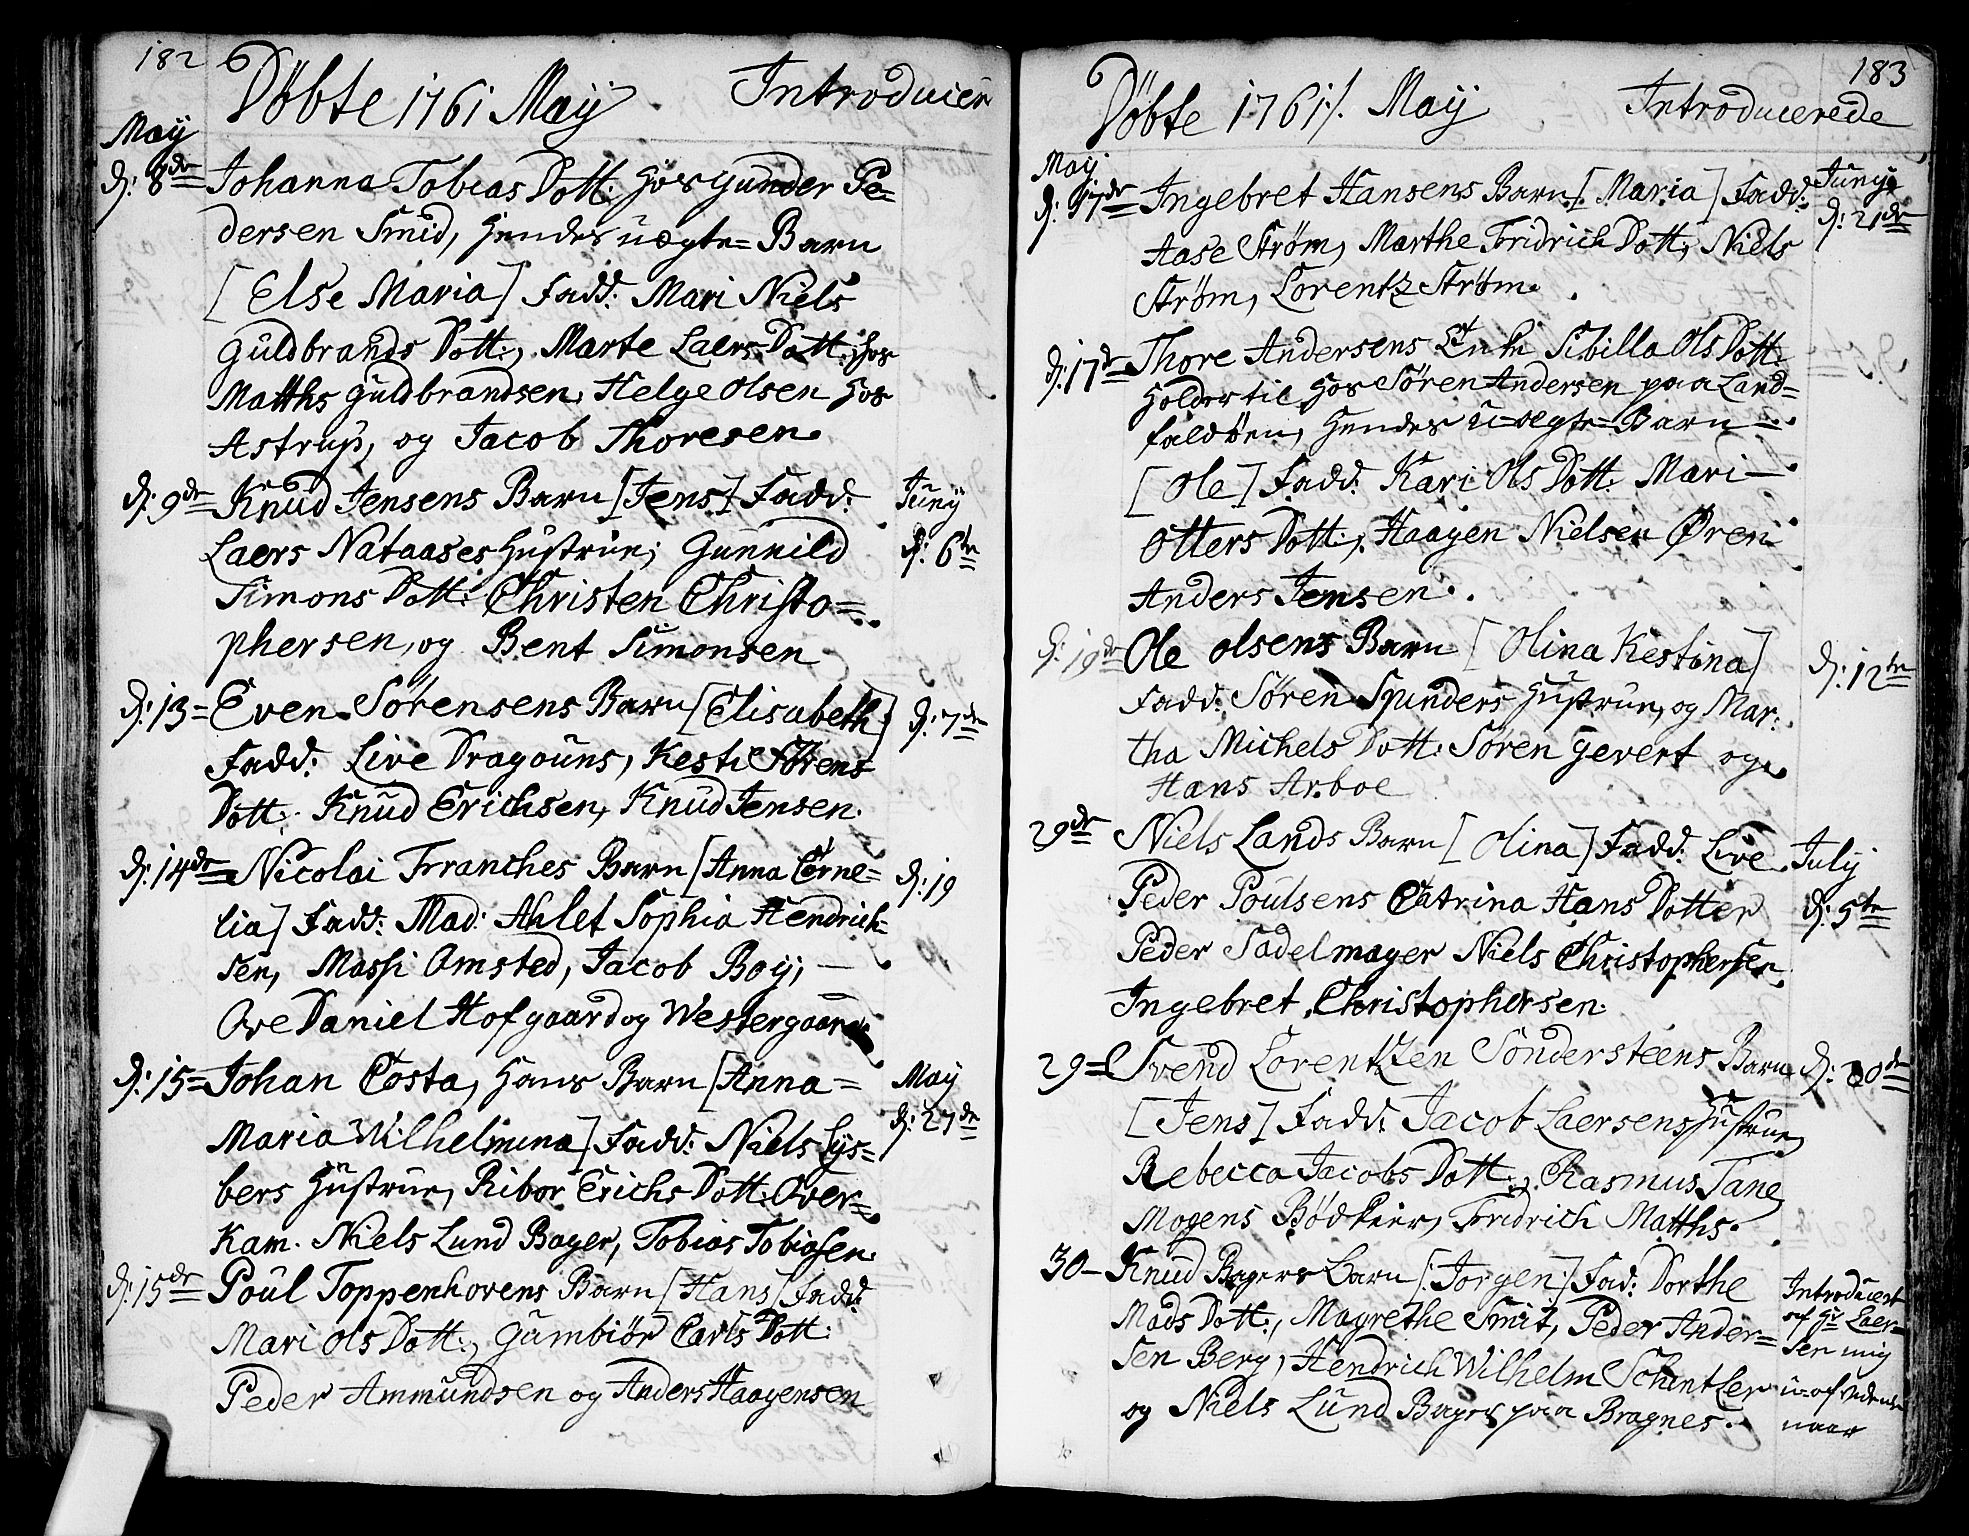 182
Döbte 1761 May Introducer
May
d: 8de Johanna Tobias Dott: hos Gunder Pe-
dersen Smid, hendes uægte= Barn
[Else Maria] Fadd: Mari Niels
Guldbrands Dott:, Marte Laers Dott: hos
Matths Guldbrandsen, Helge Olsen hos
Astrup, og Jacob Thoresen
d: 9de Knud Jensens Barn [Jens] Fadd: Juny
Laers Nataases Hustrue; Gunnild d: 6te
Simons Dott: Christen Christo=
phersen, og Bent Simonsen
d: 13= Even Sörensens Barn [Elisabeth] d: 7de
Fadd: Live Dragouns, Kesti Sörens
Dott: Knud Erichsen, Knud Jensen.
d: 14de Nicolai Franches Barn [Anna Corne= d: 19
lia] Fadd: Mad: Ahlet Sophia Hendrich-
sen, Massi Omsted, Jacob Boy, —
Ove Daniel Hofgaard og Westergaard
d: 15= Johan Costa, hans Barn [Anna= May
Maria Wilhelmina] Fadd: Niels Lys= d: 27de
bers Hustrue, Ribor Erichs Dott: Over=
Kam. Niels Lund Bager, Tobias Tobiasen.
d: 15de Poul Toppenhovens Barn [Hans] Fadd:
Mari Ols Dott:, Gumbiör Carls Dott:
Peder Ammundsen og Anders Haagensen
183
Döbte 1761/. May Introducerede
May
d: 17de Ingebret Hansens Barn [Maria] Fadd: Juny
Aase Strøm, Marthe Fridrich Dott, Niels d: 21de
Strøm, Lorentz Strøm.
d: 17de Thore Andersens Enke Sibilla Ols Dott:
holder til hos Sören Andersen paa Land=
faldöen, hendes u=ægte=Barn
[Ole] Fadd: Kari Ols Dott: Mari —
Otters Dott:, Haagen Nielsen Øren
Anders Jensen.
d: 19de Ole Olsens Barn [Olina Kestina] d: 12te
Fadd: Søren Spunders Hustrue, og Mar:
tha Michels Dott: Sören Gevert og
Hans Arboe
29de Niels Lands Barn [Olina] Fadd: Live July
Peder Poulsens Catrina Hans Dotter d: 5te
Peder Sadelmager Niels Christophersen
Ingebret Christophersen.
29= Svend Lorentzen Söndersteens Barn d: 20de
[Jens] Fadd: Jacob Laersens Hustrue,
Rebecca Jacobs Dott:, Rasmus Tane
Mogens Bödker, Fridrich Matths.
30— Knud Bagers Barn [Jorgen] Fad: Dorthe Introducert
Mads Dott:, Magrethe Smit, Peder Ander= af Hr Laer=
sen Berg, Hendrich Wilhelm Schantler sen mig
og Niels Lund Bager paa Bragnes. u=afvidende